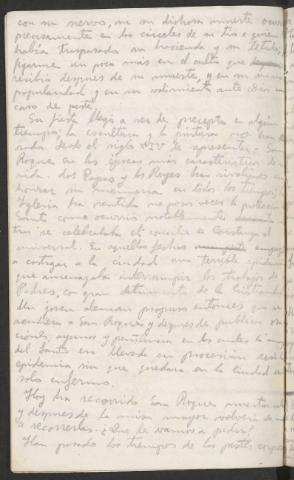 con su nervio, ni su dichosa muerte
precisamente en las cárceles de su tío a quien
había traspasado su hacienda y su título,
fijarme un poco más en el culto que
recibió después de su muerte, y en su inmensa
popularidad y en su valimiento ante Dios en
caso de peste.
Su fiesta llegó a ser de precepto en algún
tiempo; la escultura y la pintura nos han
desde el siglo XIV la a San
Roque en las épocas más características de su
vida. Los Papas y los Reyes han rivalizado en
honrar su memoria en todos los tiempos; la
Iglesia ha sentido no pocas veces la protección
Santo como ocurrió notablemente
se celebraba el concilio de Constanza
universal. En aquellas fechas empezó
a castigar a la ciudad una terrible epidemia
que amenazaba interrumpir los trabajos de
Padres, con gran detrimento de la Cristiandad
Un joven alemán propuso entonces que se
acudiera a San Roque y después de públicas
ayunos y penitencias en las cuales la imagen
del Santo era llevada en procesión cesó la
epidemia sin que quedara en la ciudad un
solo enfermo.
Hoy ha recorrido San Roque nuestras calles
y después de la misa mayor volverá de nuevo
a recorrerlas. ¿Qué le vamos a pedir?
Han pasado los tiempos de las pestes